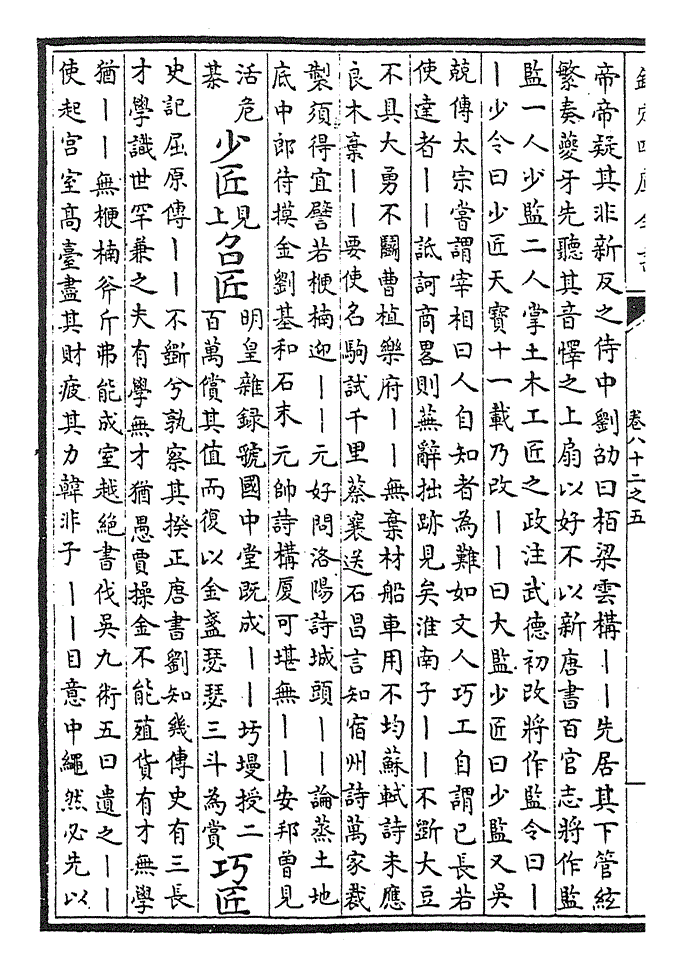 欽定四庫全書
卷八十二之五
帝帝疑其非新反之侍中劉劭曰栢梁雲構丨丨先居其下管絃
繁奏夔牙先聽其音懌之上扇以好不以新唐書百官志將作監
監一人少監二人掌土木工匠之政注武德初改將作監令曰丨
丨少令曰少匠天寶十一載乃改丨丨曰大監少匠曰少監又吳
兢傳太宗嘗謂宰相曰人自知者為難如文人巧工自謂已長若
使達者丨丨詆訶商畧則蕪辭拙跡見矣淮南子丨丨不斵大豆
不具大勇不鬭曹植樂府丨丨無棄材船車用不均蘇軾詩未應
良木棄丨丨要使名駒試千里蔡襄送石昌言知宿州詩萬家裁
製須得宜譬若楩楠迎丨丨元好問洛陽詩城頭丨丨論蒸土地
底中郎待摸金劉基和石末元帥詩構厦可堪無丨丨安邦曽見
活危
綦
少匠
見
上
召匠
明皇雜録虢國中堂既成丨丨圬墁授二
百萬償其值而復以金盞瑟瑟三斗為賞
巧匠
史記屈原傳丨丨不斵兮孰察其揆正唐書劉知幾傳史有三長
才學識世罕兼之夫有學無才猶愚賈操金不能殖貨有才無學
猶丨丨無楩楠斧斤弗能成室越絶書伐吳九術五曰遺之丨丨
使起宫室髙臺盡其財疲其力韓非子丨丨目意中繩然必先以